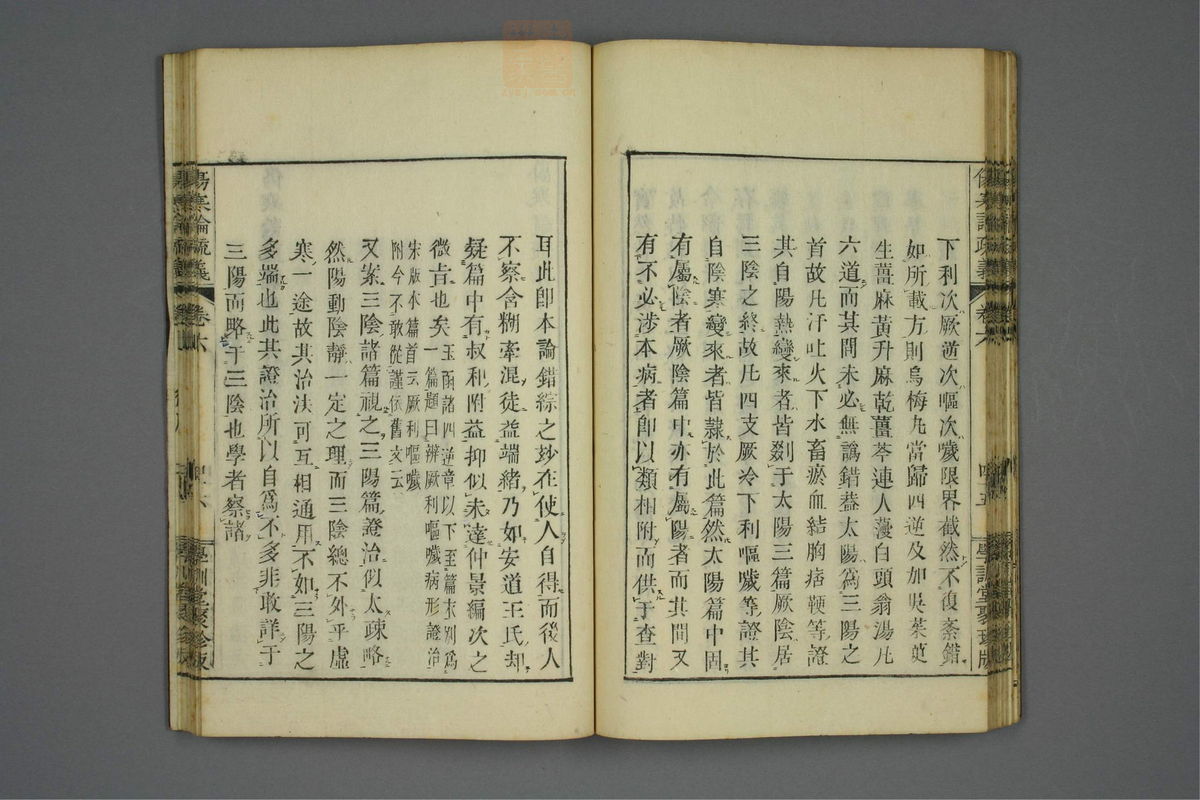 下利次厥逆次嘔次噦限界截然不復紊錯
如所載方則烏梅丸當歸四逆及加吳茱萸
生薑麻黃升麻乾薑芩連人薓白頭翁湯凡
六道而其間未必無譌錯葢太陽爲三陽之
首故凡汗吐火下水畜瘀血結胸痞鞕等證
其自陽熱變來者皆剟于太陽三篇厥陰居
三陰之終故凡四支厥冷下利嘔噦等證其
自陰寒變來者皆隷於此篇然太陽篇中固
有屬陰者厥陰篇中亦有屬陽者而其間又
有不必涉本病者卽以類相附而供于查對
耳此卽本論錯綜之玅在使人自得而後人
不察含糊牽混徒益端緒乃如安道王氏却
疑篇中有叔和附益抑似未達仲景編次之
微旨也矣
玉函諸四逆章以下至篇末別爲
一篇題曰辨厥利嘔噦病形證治
宋版本篇首云厥利嘔噦
附今不敢從謹依舊文云
又案三陰諸篇視之三陽篇證治似太疎略
然陽動陰靜一定之理而三陰總不外乎虛
寒一途故其治法可互相通用不如三陽之
多端也此其證治所以自爲不多非敢詳于
三陽而略于三陰也學者察諸
傷寒論疏義
卷六
四十五
學訓堂聚珍版
傷寒論疏義
卷六
四十六
學訓堂聚珍版